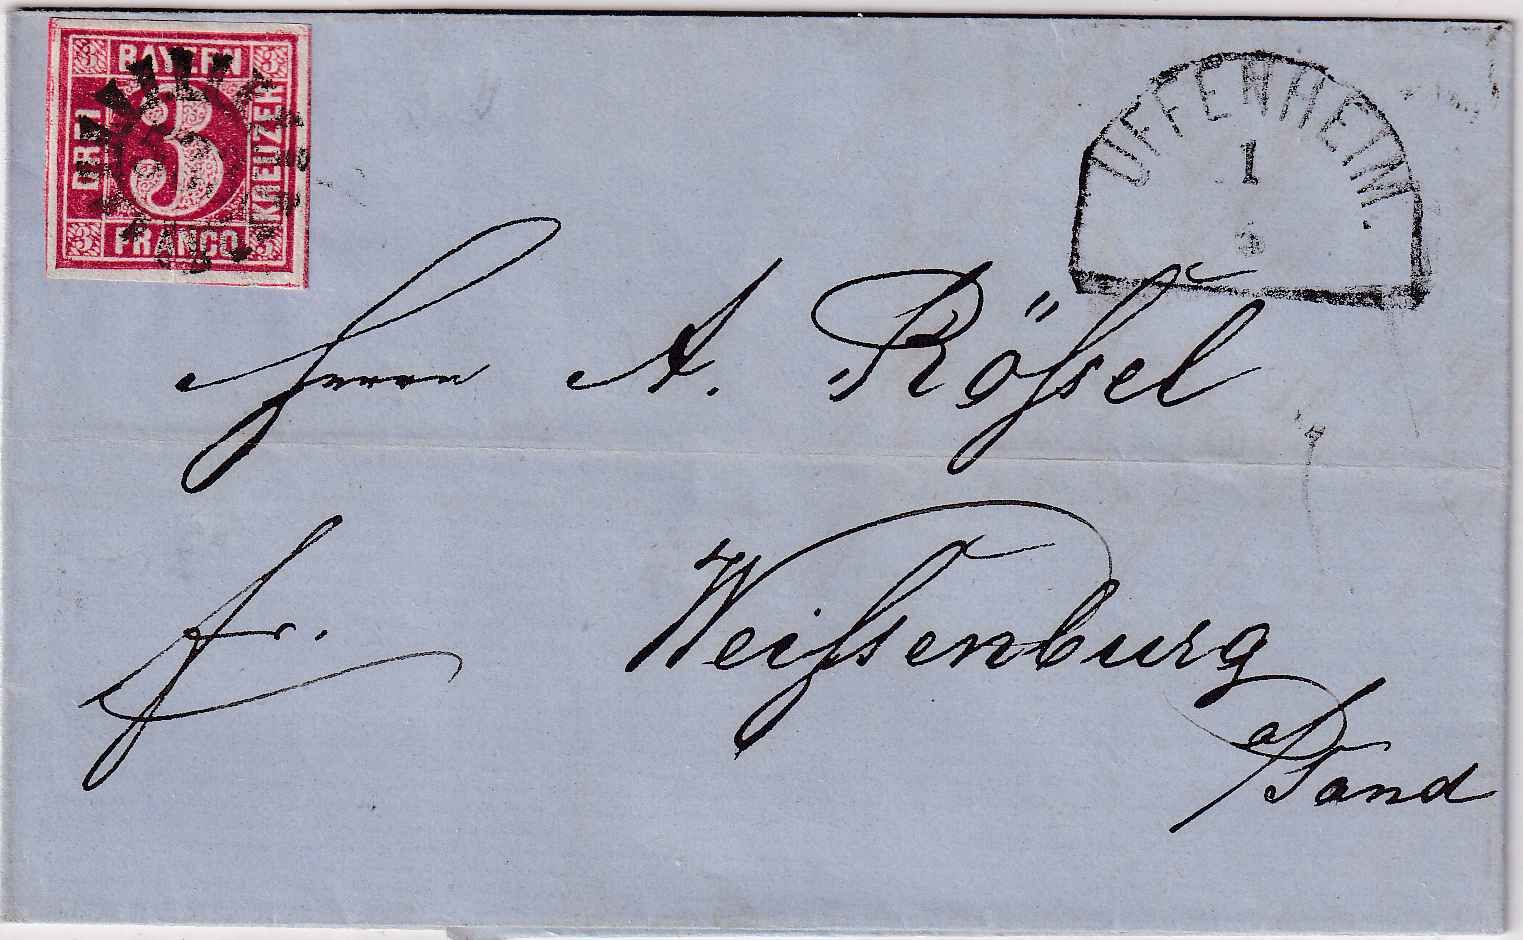 3 BAYERN 3
DREI 3 KREUZER
3 FRANCO 3
UFFENHEIM.
1
Herrn A. Rößel
fr. Weißenburg
a/Sand